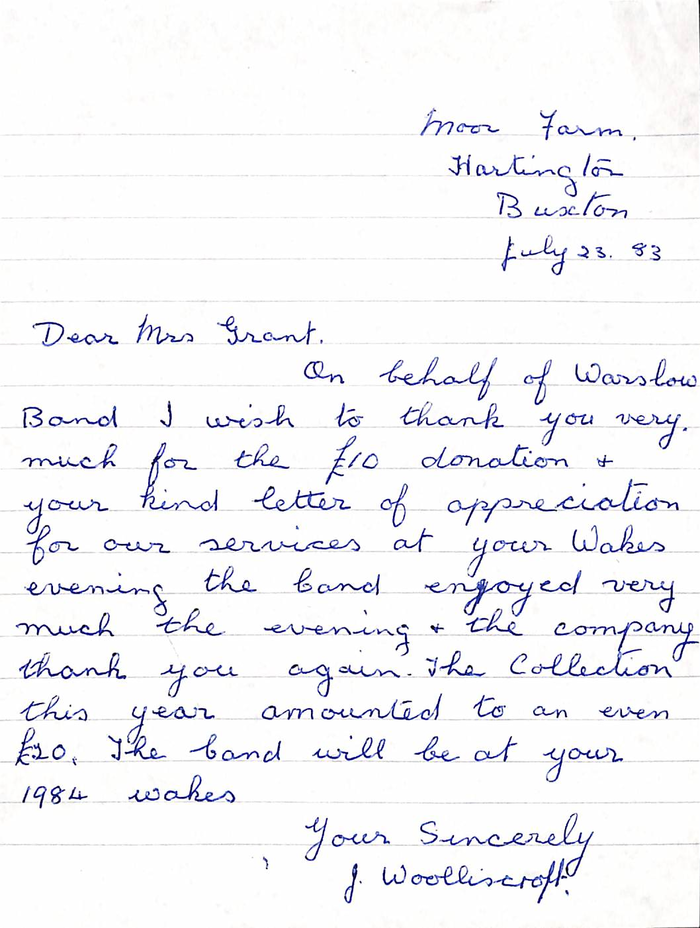 Moor Farm.
Hartington
Buxton
July 23. 83
Dear Mrs Grant.
On behalf of Warslow
Band I wish to thank you very.
much for the £10 donation &
your kind letter of appreciation
for our services at your Wakes
evening the band engoyed very
much the evening & the company
thank you again. The Collection
this year amounted to an even
£20. The band will be at your
1984 wakes
Your Sincerely
J. Woolliscroft.